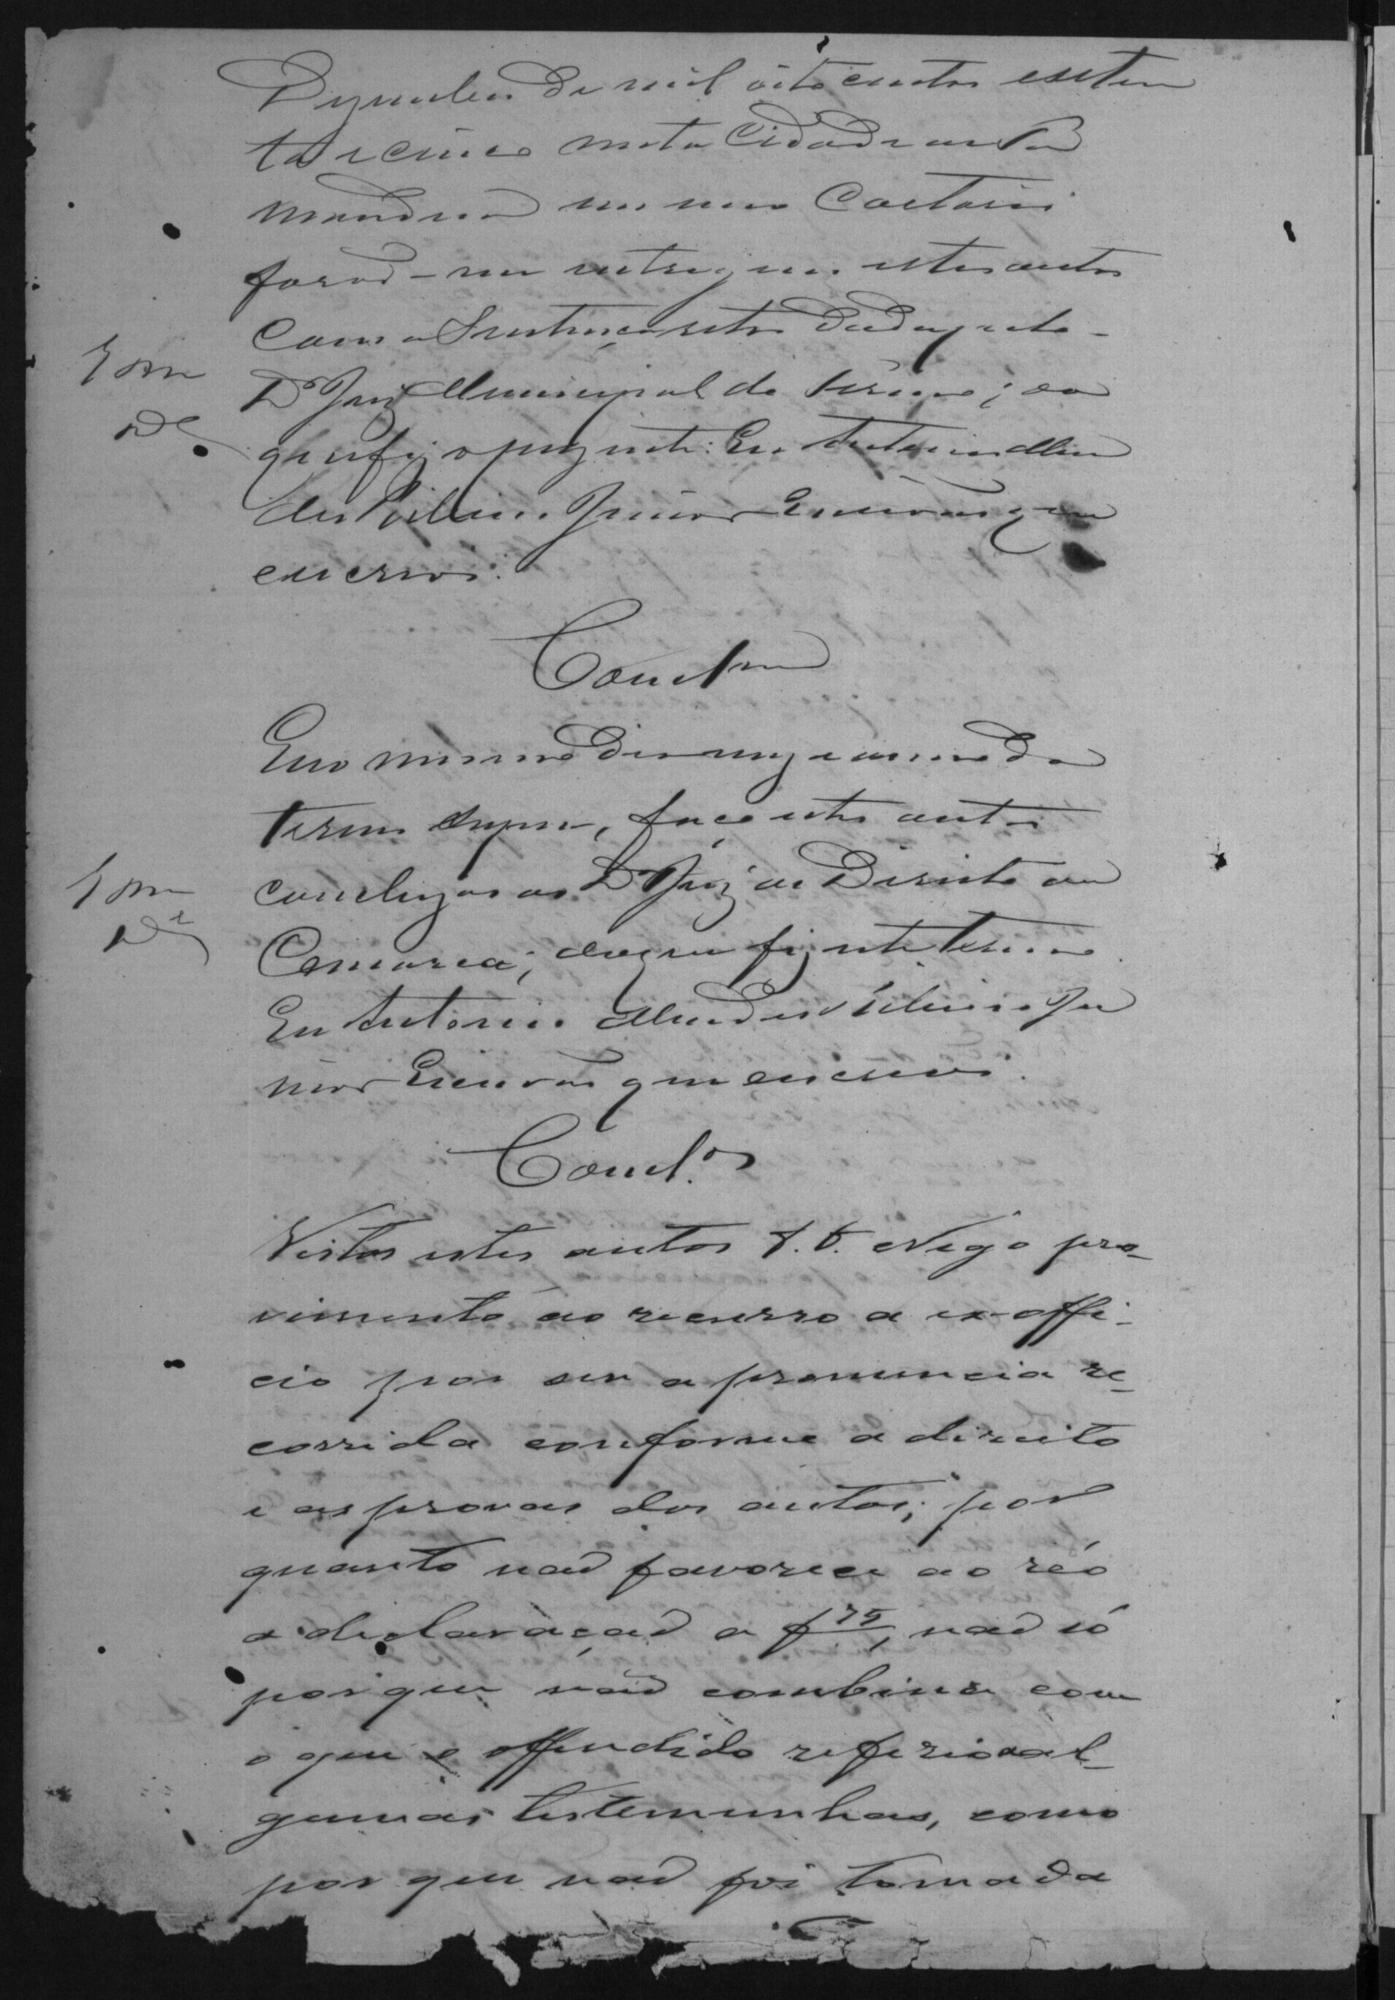 Dezembro de mil oito centos e seten
ta e cinco nesta Cidade
em meu Cartorio
forão-me entregues estes autos
com a Sentença retro do
Dr Juiz Municipal do termo; do
que fiz o presente: Eu Antonio Men
des Junior Escrivão que
escrevi.
Conclm
E no mesmo dia mez e anno do
termo supra, faço estes autos
conclusos ao Dr Juiz de Direito da
Comarca; do que fiz este termo
Eu Antonio Mendes Ju
nior Escrivão que escrevi.
Concl.os
Vistos estes autos &. &. Nego pro-
vimento ao recurso a ex-offi-
cio por ser a pronuncia re-
corrida conforme a direito
e as provas dos autos; por
quanto não favorece ao réo
a declaração a f 75, não só
porque não combina com
o que o offendido referio a al-
gumas testemunhas, como
porque não foi tomada